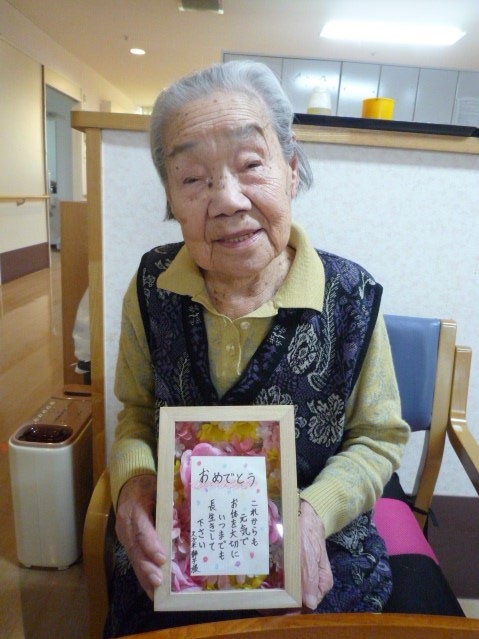 おめでとう
これからも
元気で
お体を大切に
いつまでも
長生きして
下さい